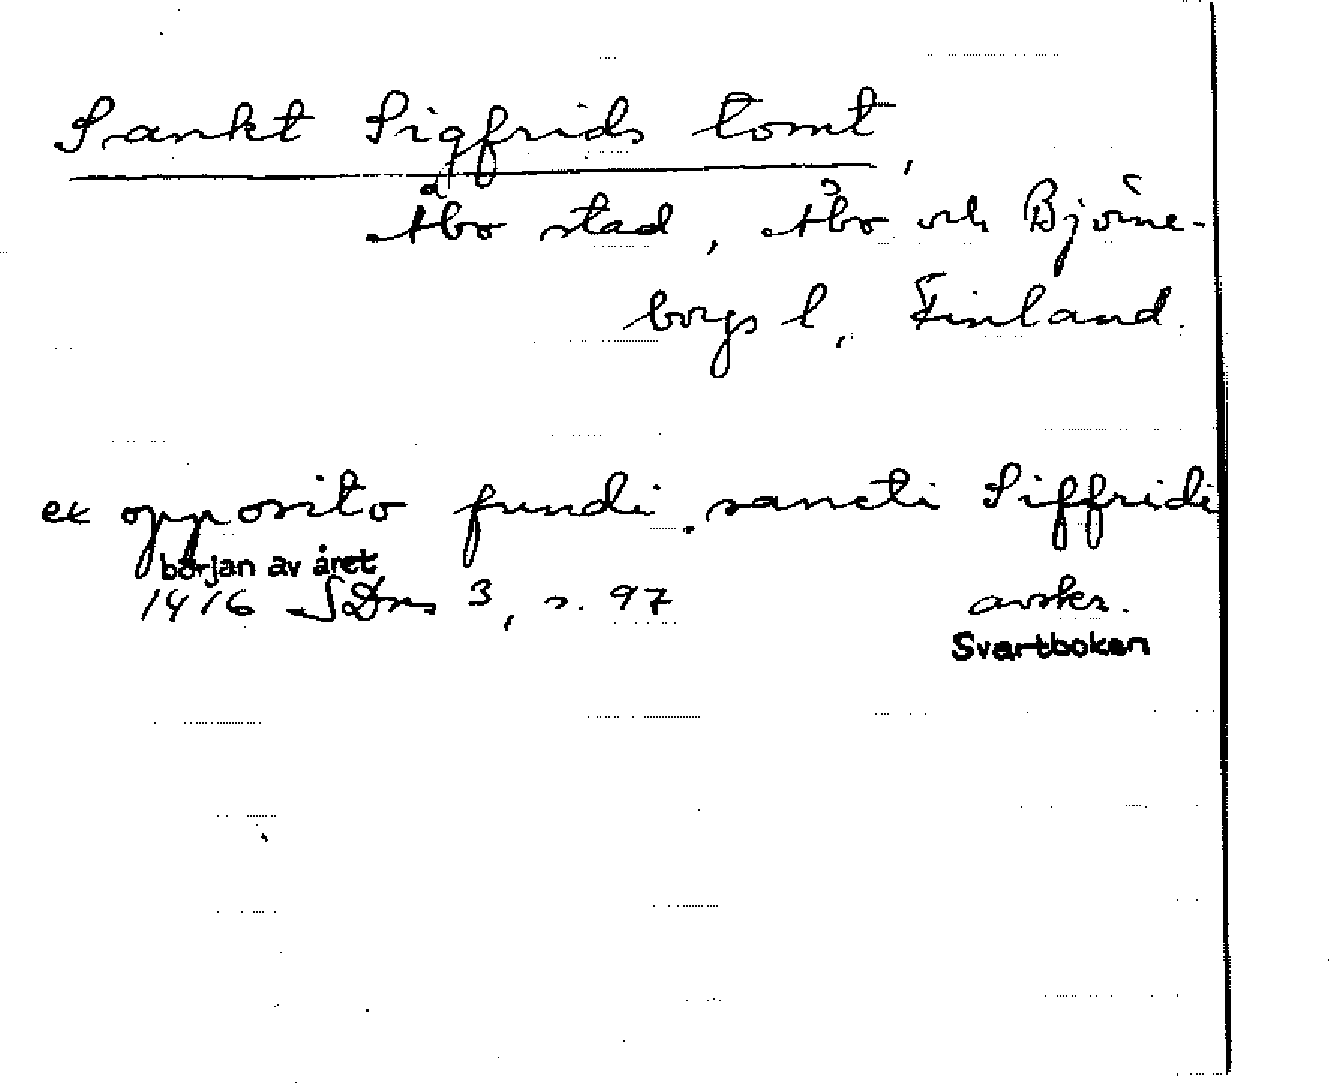 Sankt Sigfrids tomt,
Åbo stad, Åbo och Björne-
borgs l, Finland.
ex opposito fundi sancti Siffridi
början av året
1416 SDns 3, s. 97 avskr.
Svartboken